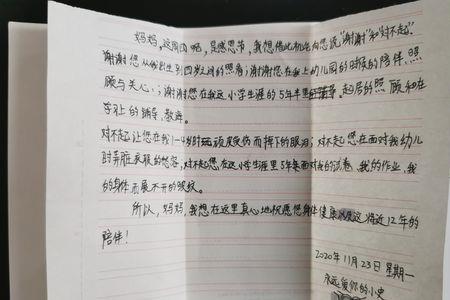 妈妈，这周四呢，是感恩节，我想借此机会向您说“谢谢”和“对不起”。
谢谢您从我出生到四岁之间的照看；谢谢您在我上幼儿园的时候的陪伴、照
顾与关心；谢谢您在我这小学生涯的5年半里起居的照顾和在
学让的辅导、教诲。
对不起，让您在我1-4岁时玩顽皮受伤而掉下的眼泪；对不起您在面对我幼儿
时弄脏衣服的愁容，对不起您在这小学生涯里5年半面对我的试卷、我的作业、我
的身体而展不开的皱纹。
所以，妈妈，我想在这里真心地祝愿您身体健康这将近12年的
陪伴！
2020年11月23日 星期一
永远爱你的小